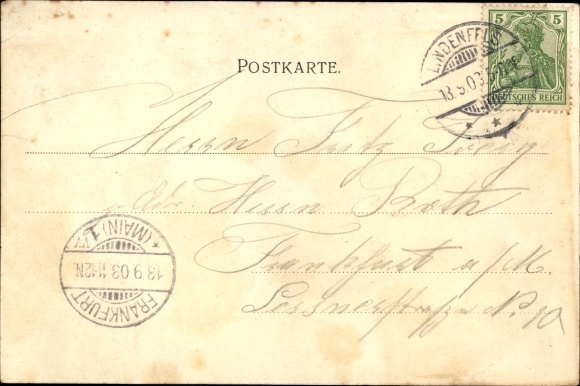 POSTKARTE.
5 5
DEUTSCHES REICH
LINDENFELS
13.9.03
* *
Herrn Fritz
Herrn Roth
Frankfurt a/M.
N. 10
FRANKFURT
13.9.03 11-12N
* (MAIN) 1